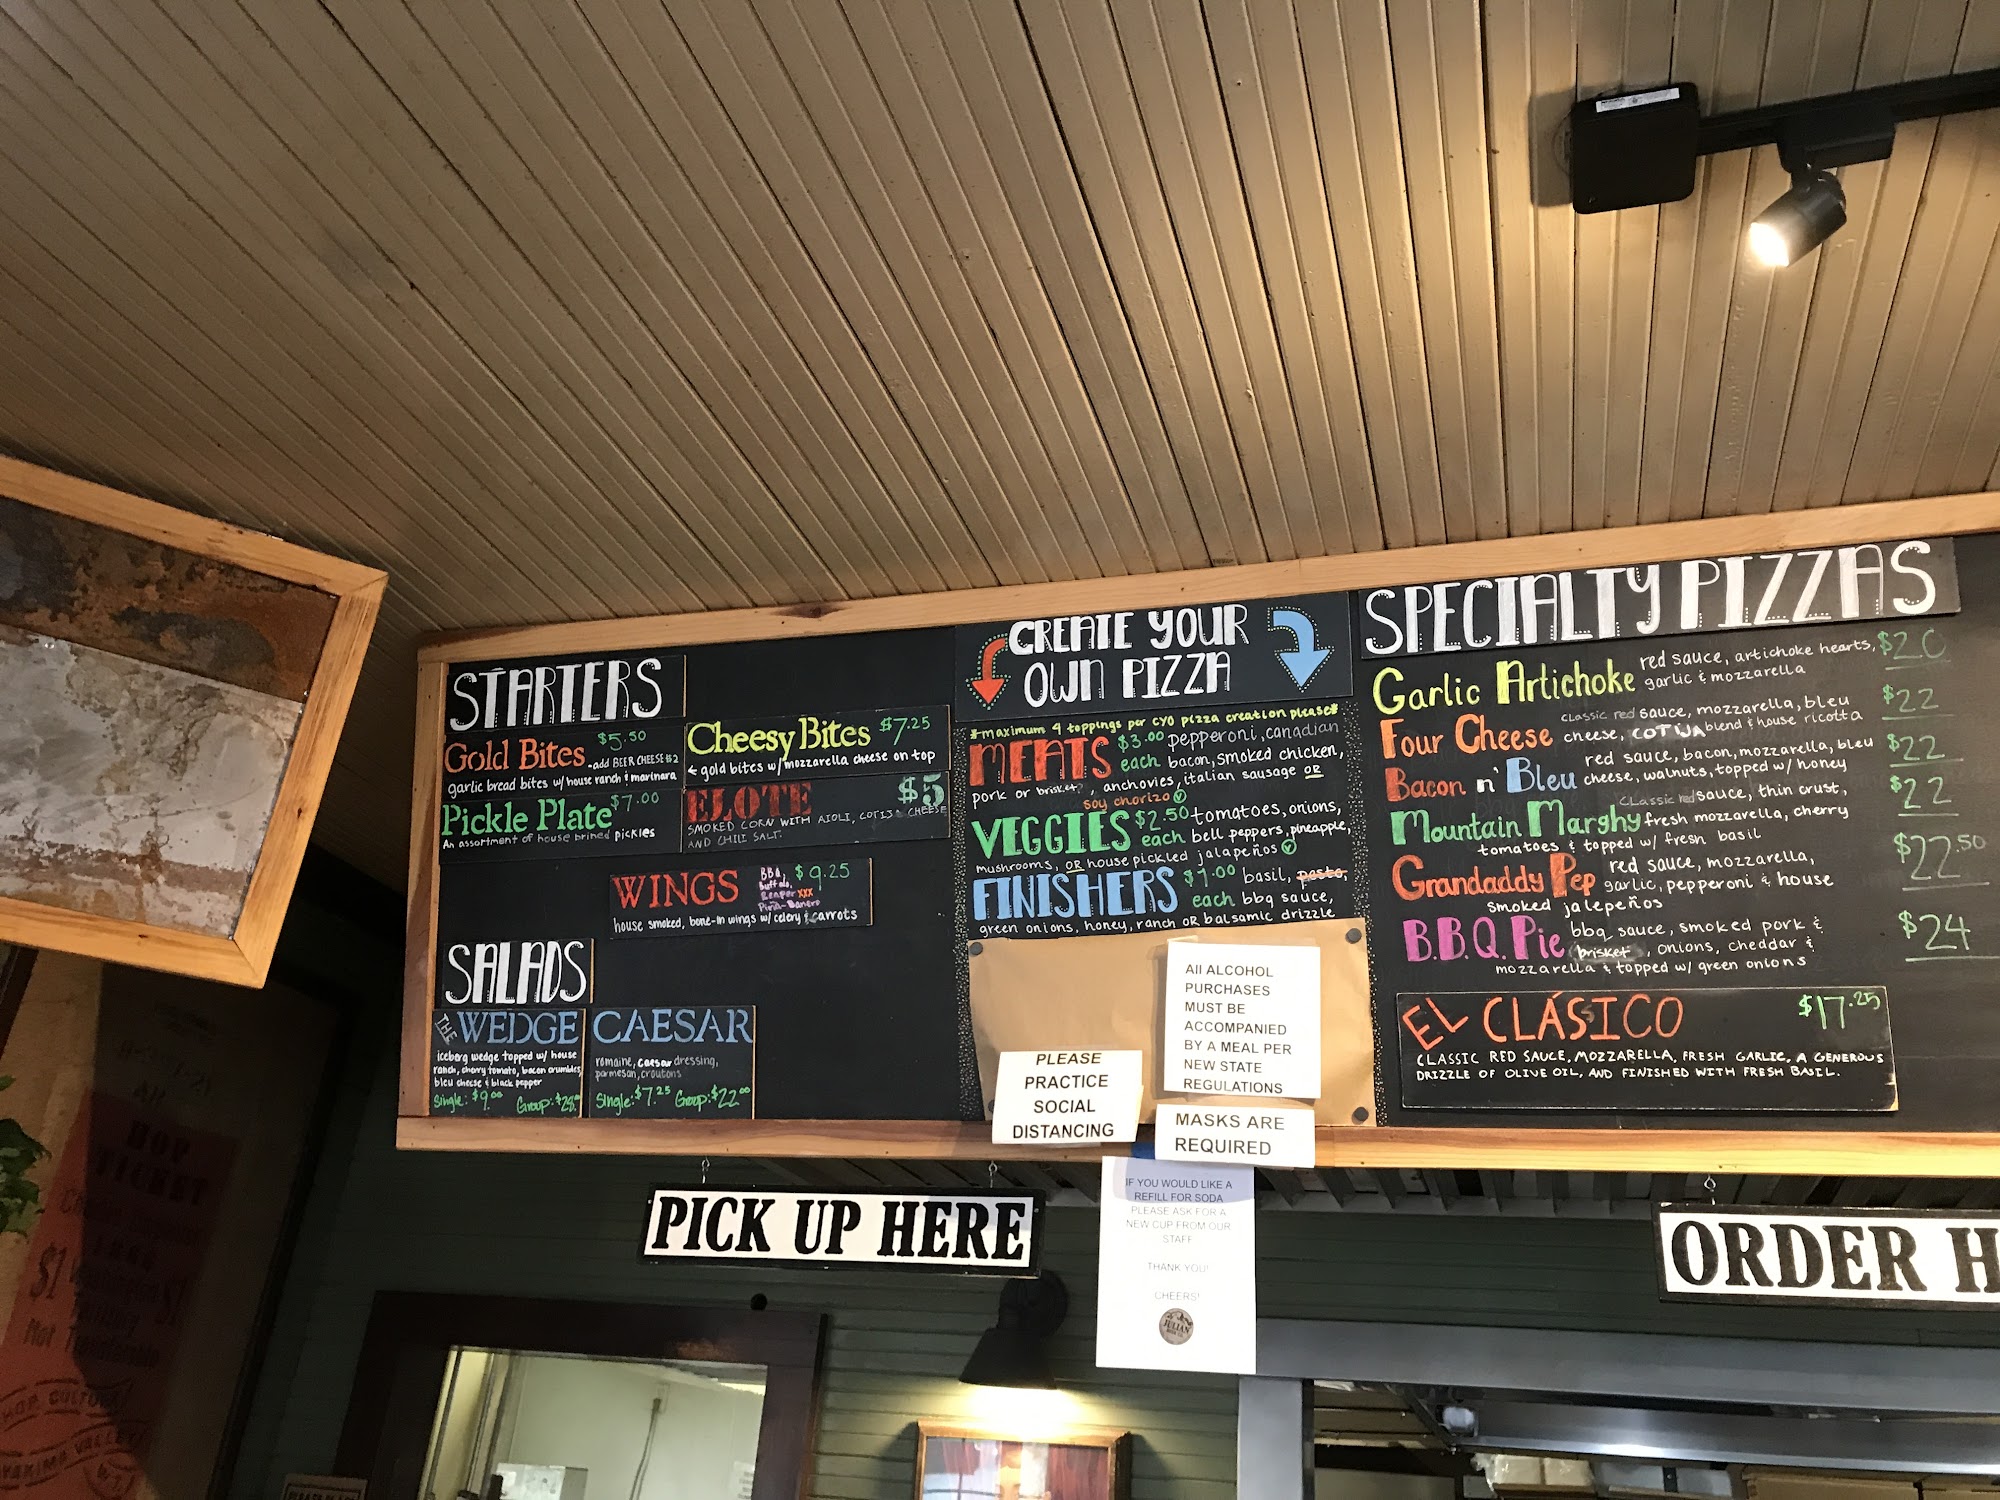 STARTERS
Gold Bites $5.50
-add BEER CHEESE $2
garlic bread bites w/ house ranch & marinara
Cheesy Bites $7.25
← gold bites w/ mozzarella cheese on top
Pickle Plate $7.00
An assortment of house brined pickles
ELOTE $5
SMOKED CORN WITH AIOLI, COTIJA CHEESE
AND CHILI SALT.
WINGS BBQ, $9.25
Buffalo,
Reaper XXX
Piña-Banero
house smoked, bone-in wings w/ celery & carrots
SALADS
THE WEDGE
iceberg wedge topped w/ house
ranch, cherry tomato, bacon crumbles,
bleu cheese & black pepper
Single: $9.00 Group: $28.00
CAESAR
romaine, caesar dressing,
parmesan, croutons
Single: $7.25 Group: $22.00
CREATE YOUR
OWN PIZZA
*maximum 4 toppings per CYO pizza creation please*
MEATS $3.00 each pepperoni, canadian
bacon, smoked chicken,
pork or brisket, anchovies, italian sausage OR
soy chorizo V
VEGGIES $2.50 each tomatoes, onions,
bell peppers, pineapple,
mushrooms, OR house pickled jalapeños V
FINISHERS $1.00 each basil, pesto,
bbq sauce,
green onions, honey, ranch OR balsamic drizzle
SPECIALTY PIZZAS
Garlic Artichoke red sauce, artichoke hearts, $20
garlic & mozzarella
Four Cheese classic red sauce, mozzarella, bleu $22
cheese, COTIJA blend & house ricotta
Bacon n' Bleu red sauce, bacon, mozzarella, bleu $22
cheese, walnuts, topped w/ honey
Mountain Marghy classic red sauce, thin crust, $22
fresh mozzarella, cherry
tomatoes & topped w/ fresh basil
Grandaddy Pep red sauce, mozzarella, $22.50
garlic, pepperoni & house
smoked jalepeños
B.B.Q. Pie bbq sauce, smoked pork & $24
brisket, onions, cheddar &
mozzarella & topped w/ green onions
EL CLÁSICO $17.25
CLASSIC RED SAUCE, MOZZARELLA, FRESH GARLIC, A GENEROUS
DRIZZLE OF OLIVE OIL, AND FINISHED WITH FRESH BASIL.
All ALCOHOL
PURCHASES
MUST BE
ACCOMPANIED
BY A MEAL PER
NEW STATE
REGULATIONS
PLEASE
PRACTICE
SOCIAL
DISTANCING
MASKS ARE
REQUIRED
IF YOU WOULD LIKE A
REFILL FOR SODA
PLEASE ASK FOR A
NEW CUP FROM OUR
STAFF
THANK YOU!
CHEERS!
JULIAN
PICK UP HERE
ORDER H
HOP
TICKET
$1 $1
Not Transferable
HOP CULTURE
YAKIMA VALLEY